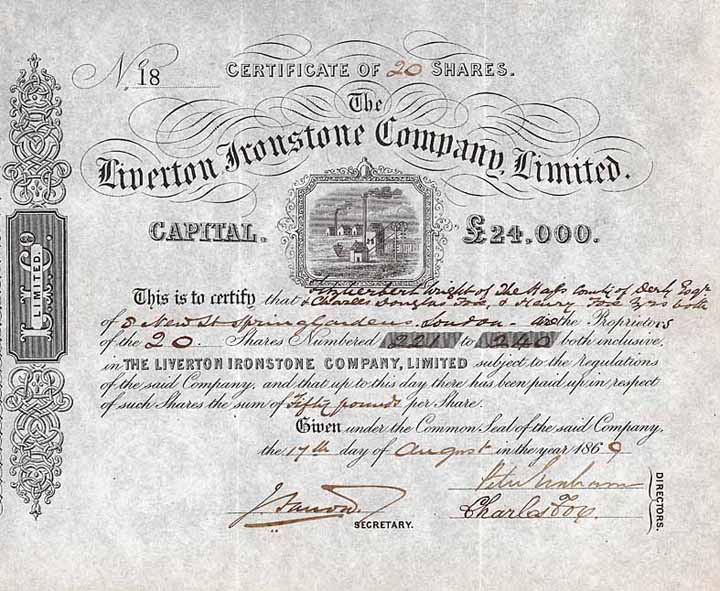 No. 18
CERTIFICATE OF 20 SHARES.
The
Liverton Ironstone Company, Limited.
CAPITAL. £24,000.
L I Co
LIMITED.
This is to certify that Wright of The County of Derby Esqre
& Charles Douglas Fox & Henry Fox both
of 8 New St Spring Gardens, London - are the Proprietors
of the 20. Shares Numbered 221 to 240 both inclusive,
in THE LIVERTON IRONSTONE COMPANY, LIMITED subject to the Regulations
of the said Company, and that up to this day there has been paid up in respect
of such Shares the sum of Fifty pounds per Share.
Given under the Common Seal of the said Company,
the 17th day of August in the year 1869
Charles Fox
DIRECTORS.
SECRETARY.